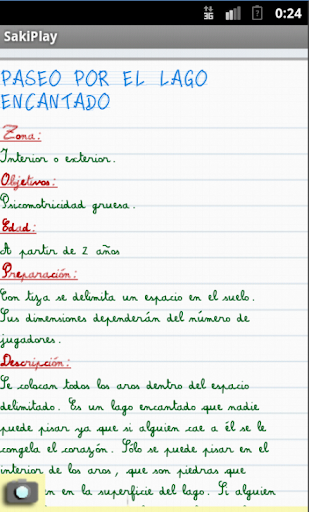 3G
0:24
SakiPlay
PASEO POR EL LAGO
ENCANTADO
Zona:
Interior o exterior.
Objetivos:
Psicomotricidad gruesa.
Edad:
A partir de 2 años
Preparación:
Con tiza se delimita un espacio en el suelo.
Sus dimensiones dependerán del número de
jugadores.
Descripción:
Se colocan todos los aros dentro del espacio
delimitado. Es un lago encantado que nadie
puede pisar ya que si alguien cae a él se le
congela el corazón. Sólo se puede pisar en el
interior de los aros, que son piedras que
en en la superficie del lago. Si alguien